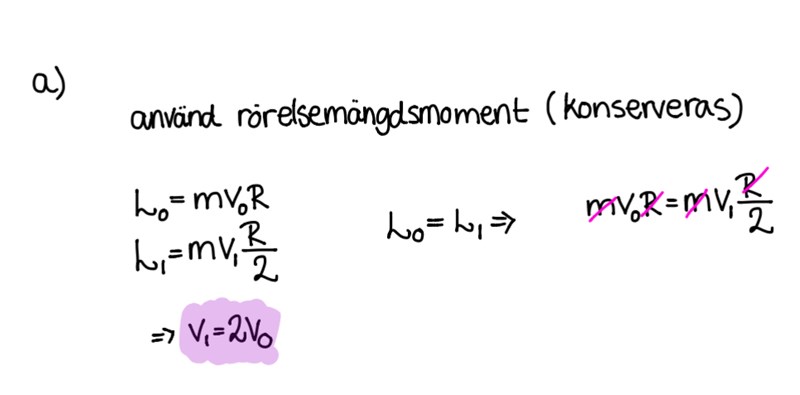 a)
använd rörelsemängdsmoment (konserveras)
L₀ = mV₀R
L₁ = mV₁ R/2
L₀ = L₁ ⇒
mV₀R = mV₁ R/2
⇒ V₁ = 2V₀